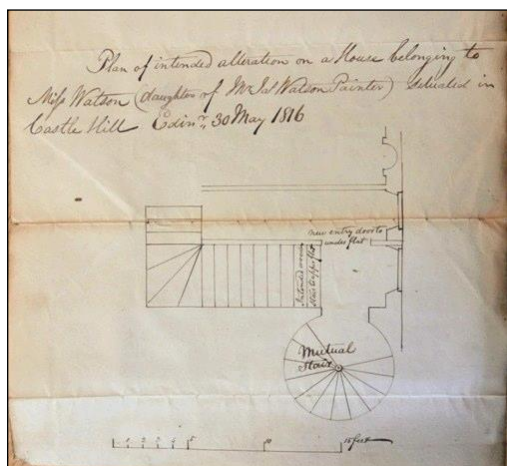 Plan of intended alteration on a House belonging to
Miss Watson (daughter of Mr Jas Watson Painter) situated in
Castle Hill Edinr, 30 May 1816
new entry door to
under flat
Intended new
Stair to upper flat
Mutual
Stair
1 2 3 4 5 15 feet